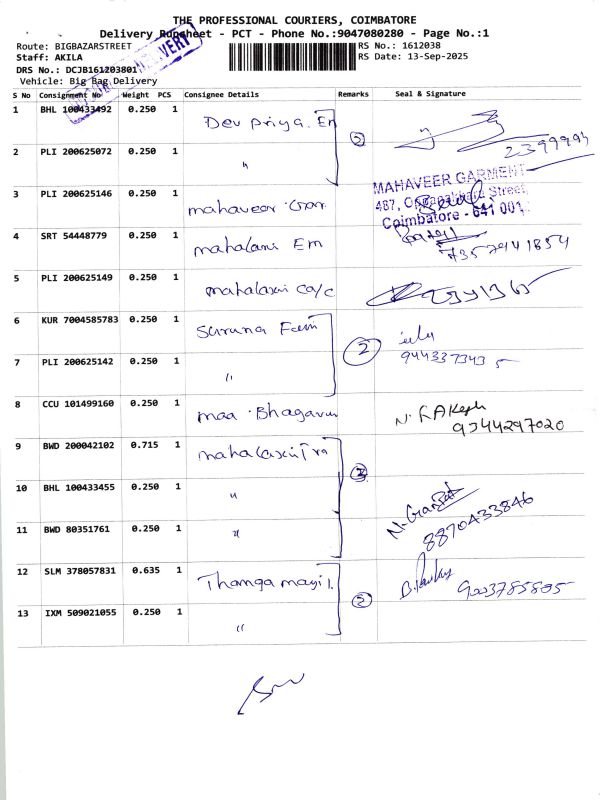 THE PROFESSIONAL COURIERS, COIMBATORE
Delivery Runsheet - PCT - Phone No.:9047080280 - Page No.:1
Route: BIGBAZARSTREET
RS No.: 1612038
Staff: AKILA
RS Date: 13-Sep-2025
DRS No.: DCJB161203801
Vehicle: Big Bag Delivery
DELIVERY
S No Consignment No Weight PCS Consignee Details Remarks Seal & Signature
1 BHL 100433492 0.250 1 Dev Priya. Em
2 PLI 200625072 0.250 1 "
2
2399994
3 PLI 200625146 0.250 1 mahaveer Gar
MAHAVEER GARMENT
487, Street,
Coimbatore - 641 001
4 SRT 54448779 0.250 1 mahalaxmi Em
7357941854
5 PLI 200625149 0.250 1 mahalaxmi ca/c
6 KUR 7004585783 0.250 1 Surana Fam
7 PLI 200625142 0.250 1 "
2
9443373435
8 CCU 101499160 0.250 1 maa Bhagavan
N. RAKesh
9344297020
9 BWD 200042102 0.715 1 mahalaxmi Tra
10 BHL 100433455 0.250 1 "
11 BWD 80351761 0.250 1 "
3
8870433846
12 SLM 378057831 0.635 1 Thangamayil.
13 IXM 509021055 0.250 1 "
2
9003785885